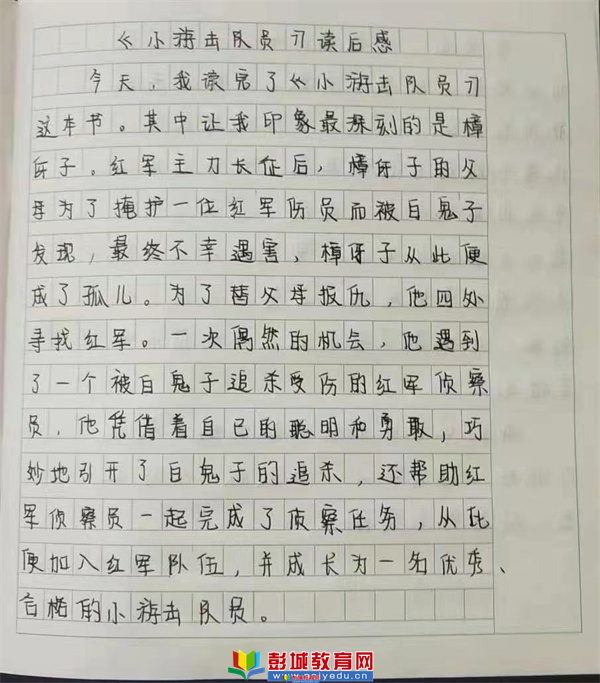 《小游击队员》读后感
今天，我读完了《小游击队员》
这本书。其中让我印象最深刻的是樟
牙子。红军主力长征后，樟牙子的父
母为了掩护一位红军伤员而被白鬼子
发现，最终不幸遇害，樟伢子从此便
成了孤儿。为了替父母报仇，他四处
寻找红军。一次偶然的机会，他遇到
了一个被白鬼子追杀受伤的红军侦察
员，他凭借着自己的聪明和勇敢，巧
妙地引开了白鬼子的追杀，还帮助红
军侦察员一起完成了侦察任务，从此
便加入红军队伍，并成长为一名优秀、
合格的小游击队员。
彭城教育网